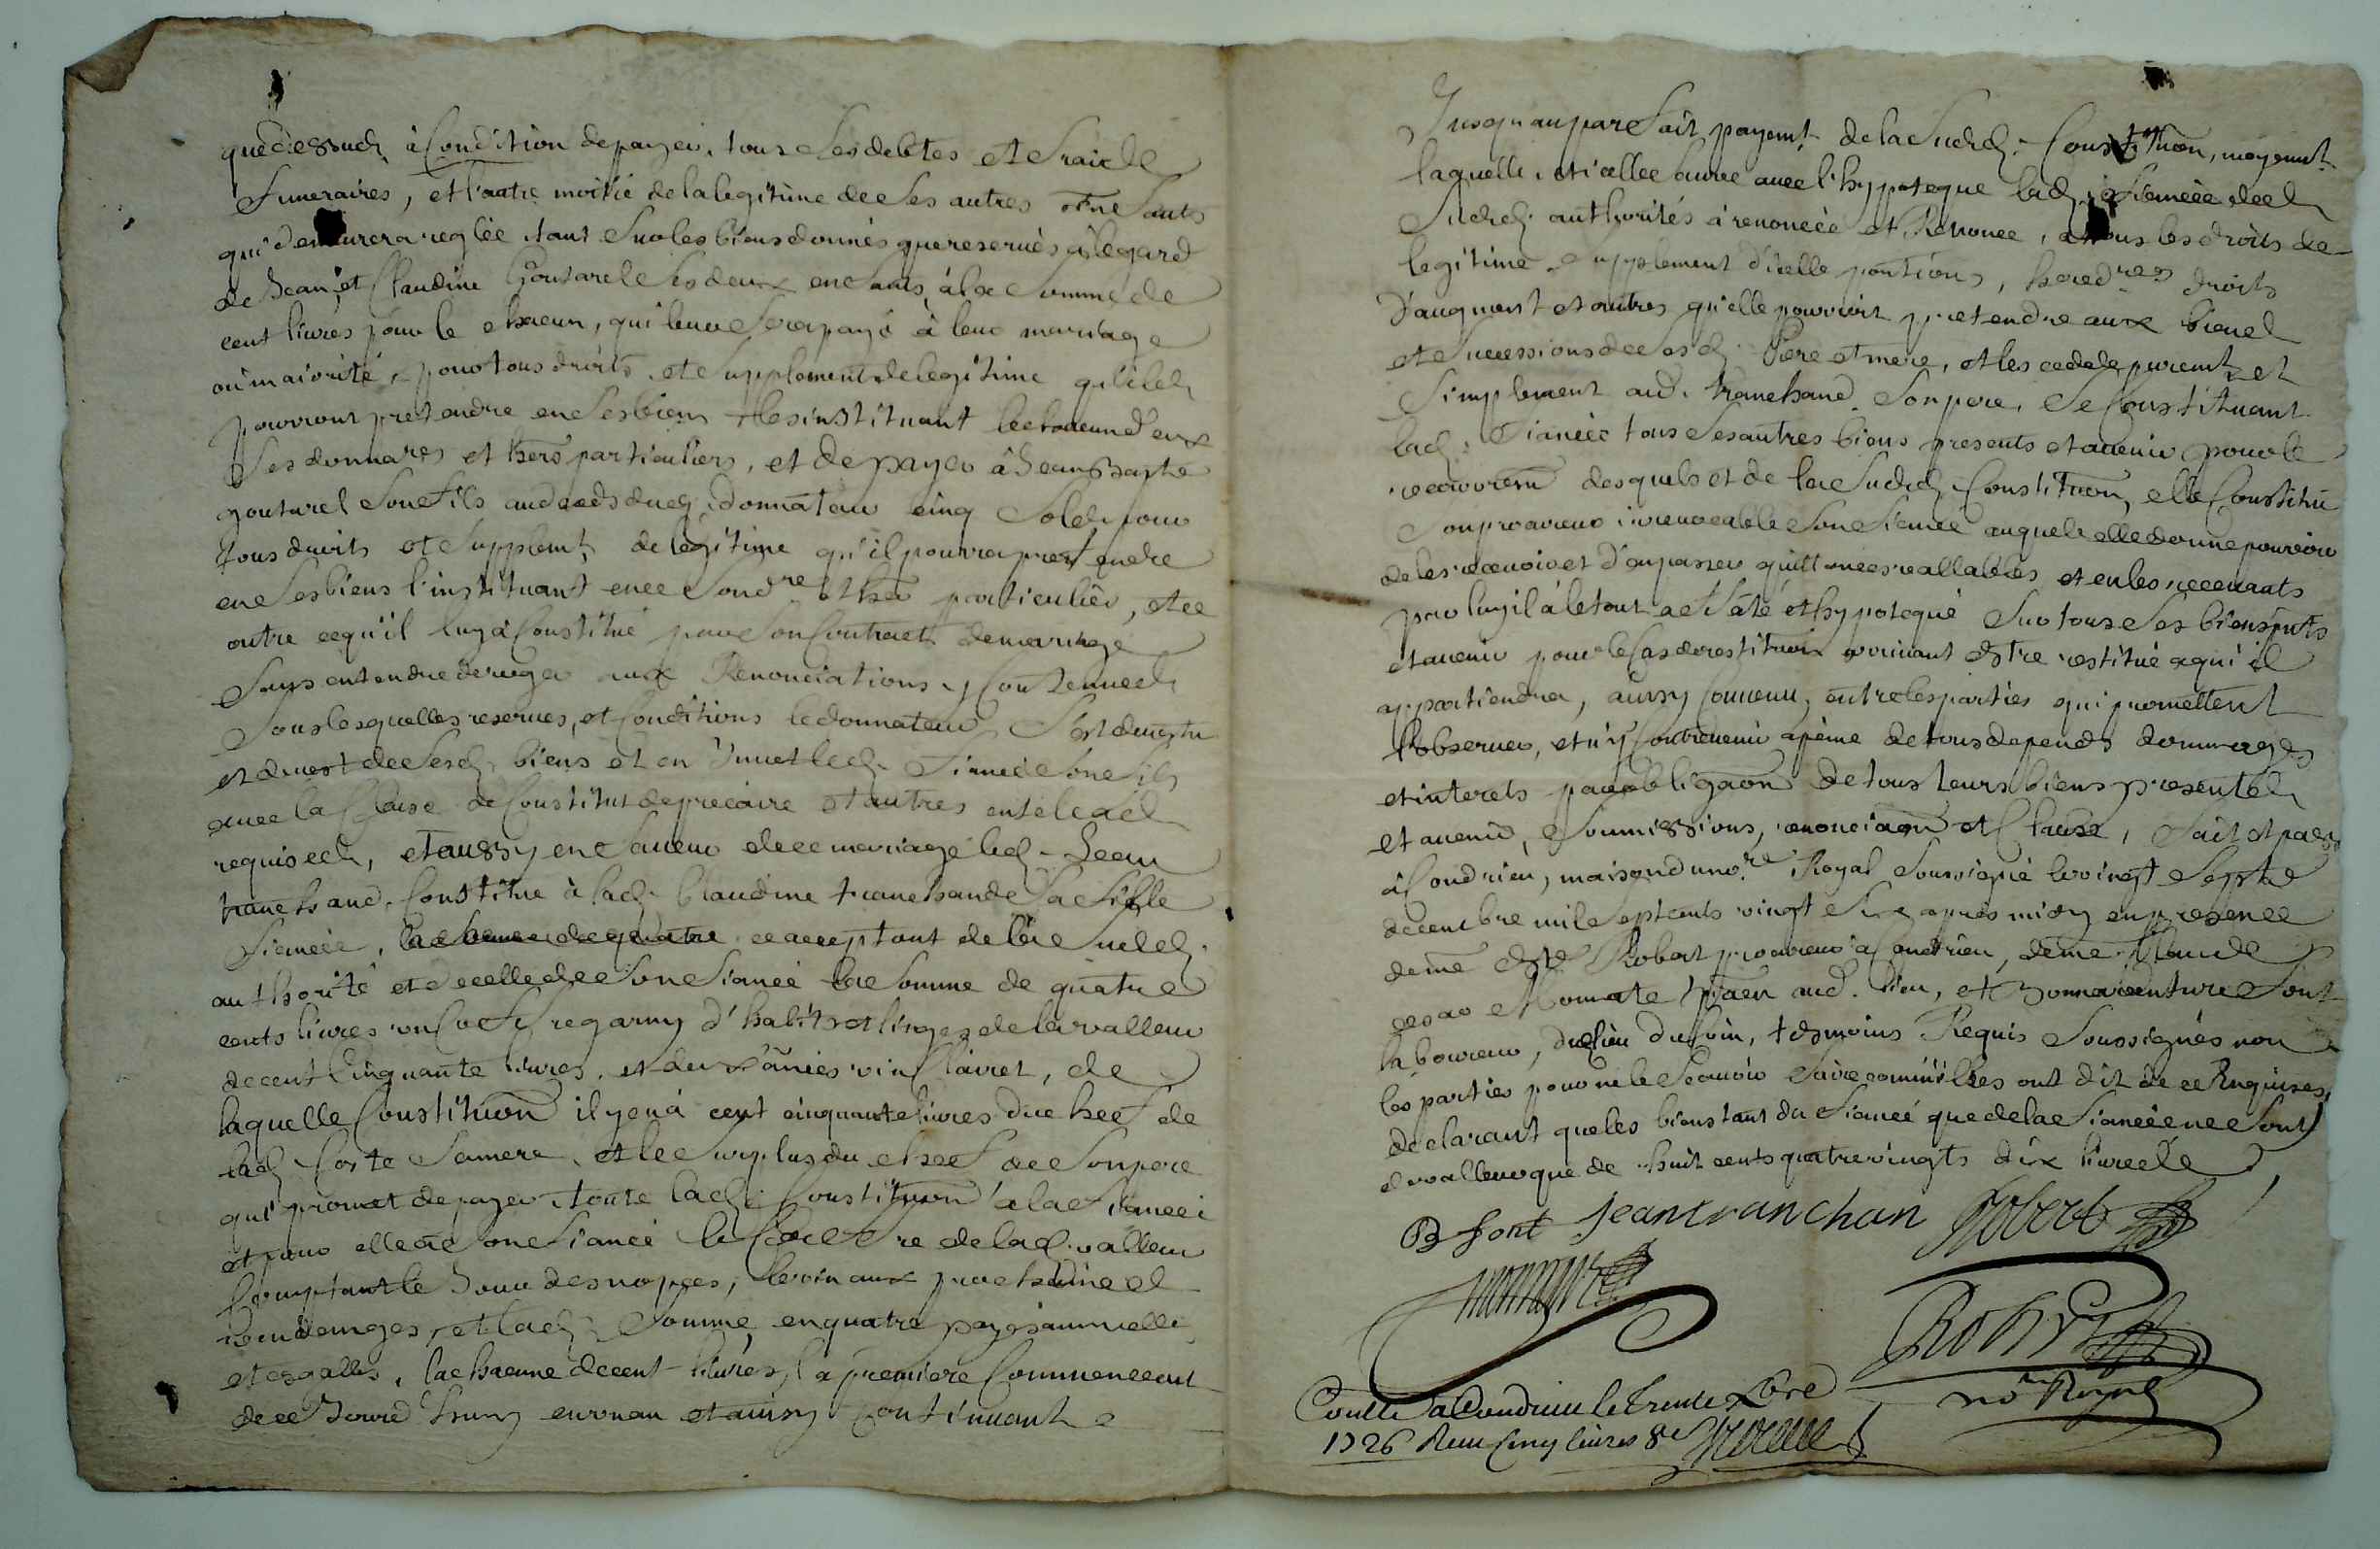 que dessud. à Condition de payer, tous ses debtes et fraix
funeraires, et l'autre moitié de la legitime de ses autres enfants
qui demeurera reglée tant sur les biens donnés que reservés à legard
de Jean, et Claudine Goutarel ses deux enfants, à la somme de
cent livres pour le chacun, qui leur sera payé à leur mariage
ou majorité, pour tous droits et supplement de legitime qu'ils
pourront pretendre en ses biens les instituant le chacun d'eux
ses donnares et hers particuliers, et de payer à Jean
goutarel son fils dud. donnateur cinq sols pour
tous droits et supplemt. de legitime qu'il pourra pretendre
en ses biens l'instituant en ce son dre. et her particulier, et ce
outre ce qu'il luy à Constitué par son Contract de mariage
sans entendre deroger aux Renonciations y Contenues
sous lesquelles reserves, et Conditions le donnateur s'est demetu
et devest de sesd. biens et en inuet led. fiancé son fils
avec la Clause de Constitut de precaire et autres en tel cas
requises, et aussy en faveur de ce mariage led. Jean
tranchand Constitue à lad. Claudine tranchande sa fille
fiancée, la somme de quatre ce acceptant de l'
authorité et de celle de son fiancé la somme de quatre
cents livres un Coffre garny d'habits et linges de la valleur
de cent Cinquante livres, et deux anées vin Clairet, de
laquelle Constitution il y en à cent cinquante livres du chef de
lad. Coste sa mere, et le surplus du chef de son pere
qui promet de payer toute lad. Constitution à la fiancée
et pour elle à son fiancé le Coffre de lad. valleur
Comptant le Jour des nopces, le vin aux prochaines
vendanges, et lad. somme en quatre payes annuelles
et esgalles, la chacune de cent livres, la premiere Commencant
de ce Jourd'huy en un an et ainsy Continuant
Jusqu'au parfait payemt. de la susd. Constitution, moyennt.
laquelle, et icelle sauve avec l'hypoteque lad. fiancée de
susd. authorités à renoncée et Renonce, à tous les droits de
legitime, supplement d'icelle portions, heredres droits
d'augment et autres qu'elle pourroit pretendre aux biens
et successions de sesd. Pere et mere, et les cede purement et
simplement aud. tranchand son pere, se Constituant
lad. fiancée tous ses autres biens presents et avenir pour le
recouvremt desquels et de la susd. Constitution, elle Constitue
son procureur irrevocable son fiancé auquel elle donne pouvoir
de les recevoir et d'en passer quittances vallables et en les recevants
par luy il à le tout assuré et hypotequé sur tous ses biens pnts
et avenir pour le Cas de restitution arrivant estre restitué à qui il
appartiendra, ainsy Convenu, entre les parties qui promettent
l'observer, et n'y Contrevenir à peine de tous depends dommages
et interets par obligaon de tous leurs biens presents
et avenir, soumissions, renonciaon et Clause, fait et passé
à Condrieu, maison du nore. Royal soussigné le vingt sept
decembre mil sept cents vingt six apres midy en presence
de me Robert procureur à Condrieu, de me Claude
aud. lieu, et Bonnaventure font
laboureur, dud. lieu, tesmoins Requis soussignés non
les parties pour ne le scavoir faire comme elles ont dit de ce Enquises,
declarant que les biens tant du fiancé que de la fiancée ne sont
de valleur que de huit cents quatre vingts dix livres
B font Jean tranchan Robert
Robert
no. Royal
Conllé à Condrieu le trente Xbre
1726 Receu Cinq livres 8s